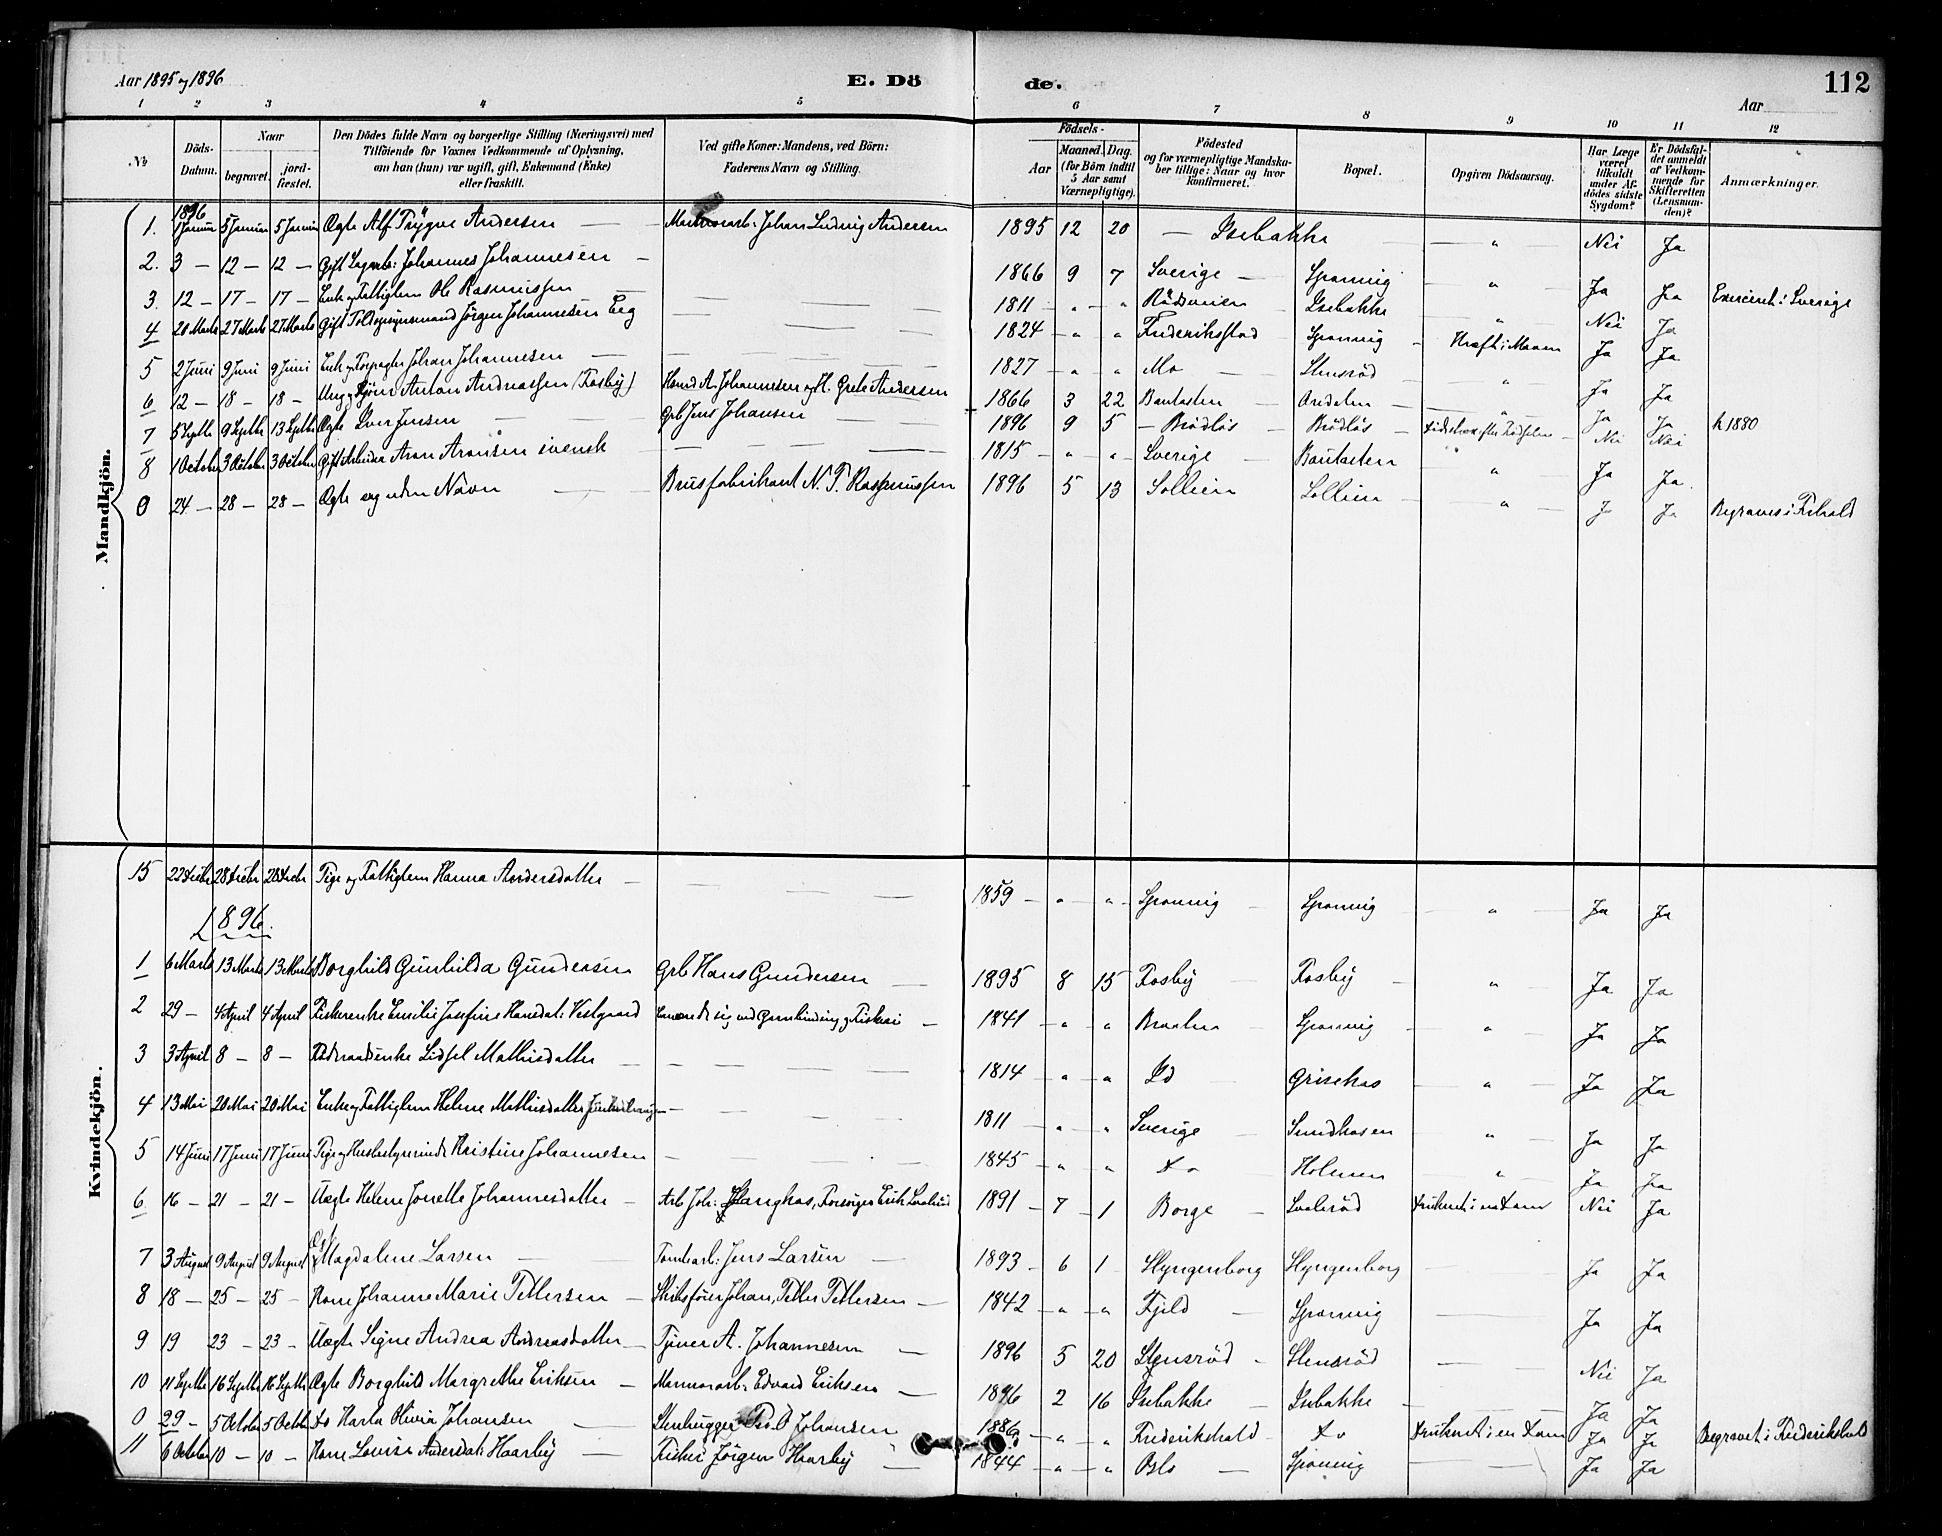 Aar 1895 og 1896 E. Dö de. Aar 112
1 2 3 4 5 6 7 8 9 10 11 12
№ Döds-Datum. Naar begravet. jord-fæstet. Den Dödes fulde Navn og borgerlige Stilling (Næringsvei) med Tilföiende for Voxnes Vedkommende af Oplysning, om han (hun) var ugift, gift, Enkemand (Enke) eller fraskilt. Ved gifte Koner: Mandens, ved Börn: Faderens Navn og Stilling. Födsels- Aar Maaned. Dag. (for Börn indtil 5 Aar samt Værnepligtige). Födested og for værnepligtige Mandskaber tillige: Naar og hvor konfirmeret. Bopæl. Opgiven Dödsaarsag. Har Læge været tilkaldt under Afdödes sidste Sygdom? Er Dödsfaldet anmeldt af Vedkommende for Skifteretten (Lensmanden)? Anmærkninger.
Mandkjön.
1896
1. 1 Januar 5 Januar 5 Januar Ægte Alf Trÿgve Andersen — Johan Ludvig Andersen 1895 12 20 — Isebakke — " — Nei Ja
2. 3 — 12 — 12 — Gift Johannes Johannesen — 1866 9 7 Sverige — Sponvig — " — Ja Ja i Sverige
3. 12 — 17 — 17 — Enkem og Fattiglem Ole Rasmussen — 1811 — " — " Isebakke — " — Nei Ja
4 20 Marts 27 Marts 27 Marts Gift Toldopsynsmand Jörgen Johannesen Eeg — 1824 — " " Frederikstad — Sponvig — Kræft i Maven Ja Ja
5 2 Juni 9 Juni 9 Juni Johan Johannesen — 1827 — " " Mo — Stensröd — " — Ja Ja
6 12 — 18 — 18 — Anton Andreassen (Kosby) A. Johannesen og H. Grete Andersen 1866 3 22 Bautasten — — " — Ja Ja k 1880
7 5 Septbr 9 Septbr 13 Septbr Ægte Iver Jensen — Grb Jens Johansen — 1896 9 5 — Brödlös — Brödlös — Nei Nei
8 1 October 3 October 3 October Gift Arbeider Aron Aronsen svensk — 1815 — " — " — Sverige — Bautasten — " — Ja Ja
0 24 — 28 — 28 — Ægte og uden Navn — Brusfabrikant N. T. Rasmussen 1896 5 13 Sollien Sollien — " — J Ja Begraves i Frhald
Kvindekjön.
15 22 Decbr 28 Decbr 28 Decbr Pige og Fattiglem Hanna Andersdatter — 1859 — " — " — Sponvig — Sponvig — " — Ja Ja
1896.
1 6 Marts 13 Marts 13 Marts Borghild Gunhilda Gundersen Grb Hans Gundersen — 1895 8 15 Kosby — Kosby — " — Ja Ja
2 29 — 4 April 4 April Fiskerenke Emilie Josefine Hansdat: Vestgaard sig ved Garnbinding og Fiskeri — 1841 — " " Braaten — Sponvig — " — Ja Ja
3 3 April 8 — 8 — Mathisdatter — 1814 — " — " Id — Grisekas — " — Ja Ja
4 13 Mai 20 Mai 20 Mai Enke og Fattiglem Helene Mathisdatter — 1811 — " — " Sverige — Sundhasen — " — Ja Ja
5 14 Juni 17 Juni 17 Juni Pige og Husbestyrerinde Kristine Johannesen — 1845 — " — " do — Holmen — " — Ja Ja
6 16 — 21 — 21 — Uægte Helene Jonette Johannesdatter — Arb. Joh: Erik 1891 — 7 — 1 Borge — Druknet i en Dam Nei Ja
7 3 August 9 August 9 August Ægt Magdalene Larsen — Tomtearb: Jens Larsen — 1893 — 6 1 Slyngenborg Slyngenborg — Ja Ja
8 18 — 25 — 25 — Kone Johanne Marie Pettersen — Skibsförer Johan Petter Pettersen — 1842 — " " Kjeld — Sponvig — Ja Ja
9 19 23 — 23 — Uægte Signe Andrea Andreasdatter — Tjener A. Johannesen — 1896 5 20 Stensröd — Stensröd — Nei Ja
10 11 Septbr 16 Septbr 16 Septbr Ægte Borghild Margrethe Eriksen — Marmorarb: Edvard Eriksen — 1896 2 16 Isebakke — Isebakke — Ja Ja
0 29 — 5 October 5 Octobr do Karla Olivia Johansen — Stenhugger Johansen 1886 — " — " Frederikshald — do — Druknet i en Dam Ja Ja Begravet i Frederikshald
11 6 October 10 — 10 — Kone Lovise Andersdat: Haarby — Fisker Jörgen Haarby — 1844 — " — " Oslo — Sponvig — Ja Ja